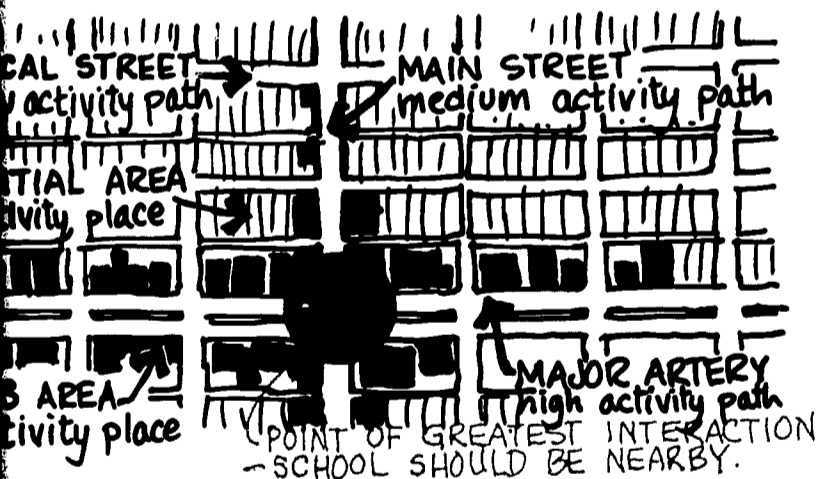 CAL STREET
activity path
MAIN STREET
medium activity path
TIAL AREA
ivity place
MAJOR ARTERY
high activity path
B AREA
tivity place
POINT OF GREATEST INTERACTION
- SCHOOL SHOULD BE NEARBY.